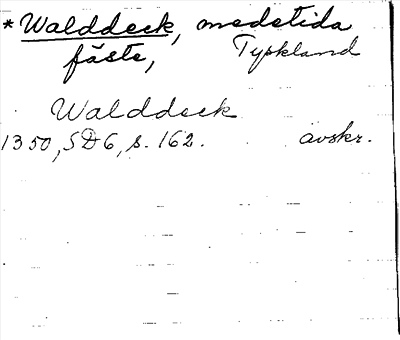 *Walddeck, medeltida
fäste, Tyskland
Walddeck
1350, SD6, s. 162. avskr.